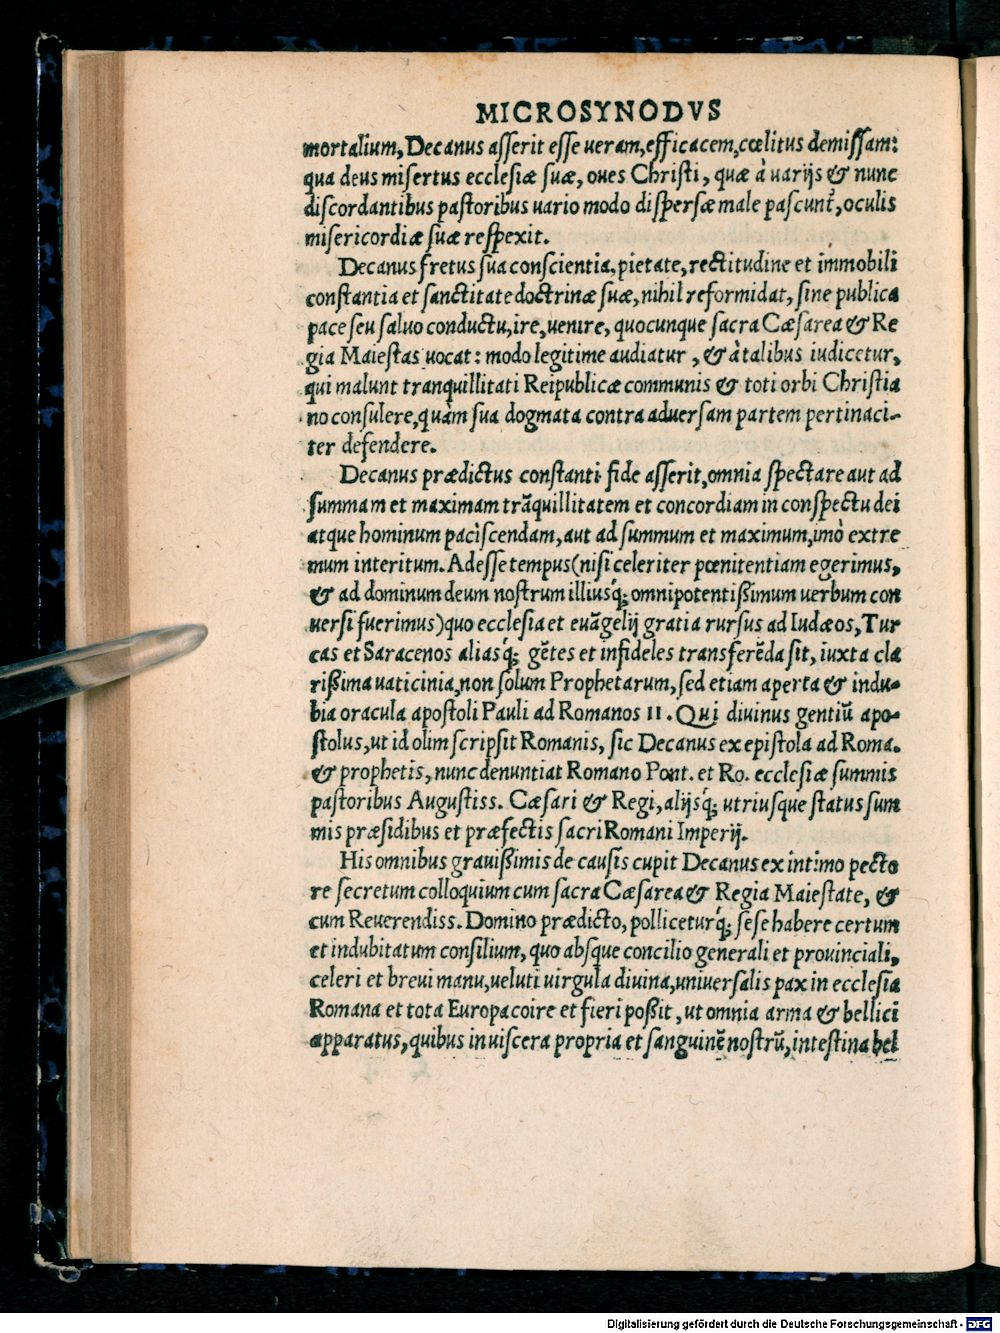 MICROSYNODVS
mortalium, Decanus asserit esse ueram, efficacem, cœlitus demissam:
qua deus misertus ecclesiæ suæ, oues Christi, quæ à uarijs & nunc
discordantibus pastoribus uario modo dispersæ male pascunt̃, oculis
misericordiæ suæ respexit.
Decanus fretus sua conscientia, pietate, rectitudine et immobili
constantia et sanctitate doctrinæ suæ, nihil reformidat, sine publica
pace seu saluo conductu, ire, uenire, quocunque sacra Cæsarea & Re
gia Maiestas uocat: modo legitime audiatur, & à talibus iudicetur,
qui malunt tranquillitati Reipublicæ communis & toti orbi Christia
no consulere, quàm sua dogmata contra aduersam partem pertinaci-
ter defendere.
Decanus prædictus constanti fide asserit, omnia spectare aut ad
summam et maximam trãquillitatem et concordiam in conspectu dei
atque hominum paciscendam, aut ad summum et maximum, imò extre
mum interitum. Adesse tempus (nisi celeriter pœnitentiam egerimus,
& ad dominum deum nostrum illiusq́; omnipotentißimum uerbum con
uersi fuerimus) quo ecclesia et euãgelij gratia rursus ad Iudæos, Tur
cas et Saracenos aliasq́; gẽtes et infideles transferẽda sit, iuxta cla
rißima uaticinia, non solum Prophetarum, sed etiam aperta & indu-
bia oracula apostoli Pauli ad Romanos 11. Qui diuinus gentiũ apo-
stolus, ut id olim scripsit Romanis, sic Decanus ex epistola ad Roma.
& prophetis, nunc denuntiat Romano Pont. et Ro. ecclesiæ summis
pastoribus Augustiss. Cæsari & Regi, alijsq́; utriusque status sum
mis præsidibus et præfectis sacri Romani Imperij.
His omnibus grauißimis de causis cupit Decanus ex intimo pecto
re secretum colloquium cum sacra Cæsarea & Regia Maiestate, &
cum Reuerendiss. Domino prædicto, polliceturq́; sese habere certum
et indubitatum consilium, quo absque concilio generali et prouinciali,
celeri et breui manu, ueluti uirgula diuina, uniuersalis pax in ecclesia
Romana et tota Europa coire et fieri poßit, ut omnia arma & bellici
apparatus, quibus in uiscera propria et sanguinẽ nostrũ, intestina bel
Digitalisierung gefördert durch die Deutsche Forschungsgemeinschaft - DFG